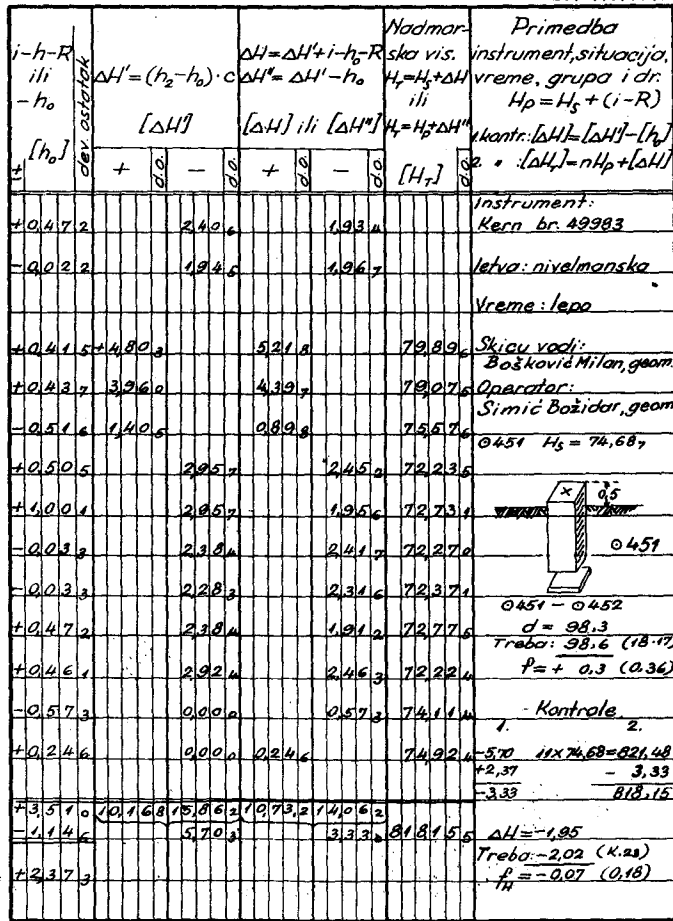 i-h-R ili -h₀ [h₀] ±
dev. ostatak
ΔH' = (h₂-h₀)·c [ΔH'] + d.o. - d.o.
ΔH = ΔH'+i-h₀-R ΔH" = ΔH'-h₀ [ΔH] ili [ΔH"] + d.o. - d.o.
Nadmorska vis. H_T=H_S+ΔH ili H_T=H_P+ΔH" [H_T] d.o.
Primedba
instrument, situacija,
vreme, grupa i dr.
H_P = H_S + (i-R)
1. kontr.: [ΔH]=[ΔH']-[h₀]
2. " : [ΔH_T]=nH_P+[ΔH]
Instrument:
+0,47 2 2,40 6 1,93 4 Kern br. 49983
-0,02 2 1,94 5 1,96 7 letva: nivelmanska
Vreme: lepo
+0,41 5 +4,80 3 5,21 8 79,89 6 Skicu vodi:
Bošković Milan, geom.
+0,43 7 3,96 0 4,39 7 79,07 5 Operator:
Simić Božidar, geom
-0,51 6 1,40 5 0,89 8 75,57 6 ⊙451 H_S = 74,68 7
+0,50 5 2,95 7 2,45 2 72,23 5
× 0,5
+1,00 1 2,95 7 1,95 6 72,73 1
-0,03 3 2,38 4 2,41 7 72,27 0 ⊙451
-0,03 3 2,28 3 2,31 6 72,37 1
⊙451 - ⊙452
+0,47 2 2,38 4 1,91 2 72,77 5 d = 98,3
Treba: 98,6 (18-17)
+0,46 1 2,92 4 2,46 3 72,22 4 f = + 0,3 (0.36)
-0,57 3 0,00 0 0,57 3 74,11 4 Kontrole
1. 2.
+0,24 6 0,00 0 0,24 6 74,92 4 -5,70 11×74,68=821,48
+2,37 - 3,33
-3,33 818,15
+3,51 0 10,16 8 15,86 2 10,73,2 14,06 2
-1,14 6 5,70 3 3,33 0 818 15 5 ΔH=-1,95
Treba: -2,02 (K.23)
+2,37 3 f_H=-0,07 (0,18)